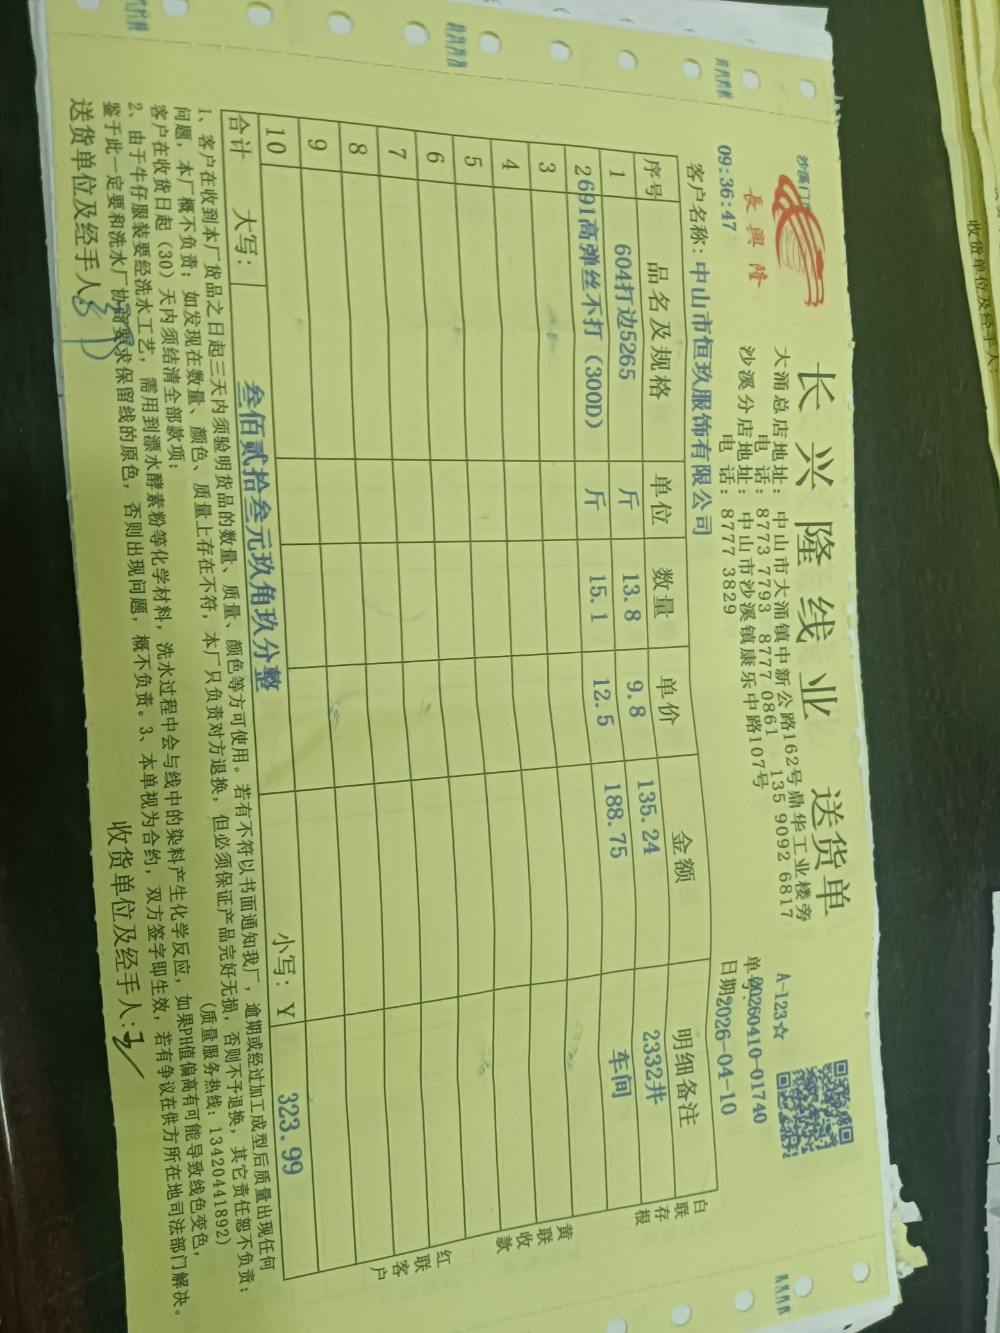 沙溪门
長興隆
长兴隆线业 送货单
大涌总店地址：中山市大涌镇中新公路162号鼎华工业楼旁
电话：8773 7793 8777 0861 135 9092 6817
沙溪分店地址：中山市沙溪镇康乐中路107号
电话：8777 3829
A-123☆
单号:20260410-01740
日期2026-04-10
09:36:47
客户名称：中山市恒玖服饰有限公司
序号 品名及规格 单位 数量 单价 金额 明细备注
1 604打边5265 斤 13.8 9.8 135.24 2332井
2 691高弹丝不打（300D） 斤 15.1 12.5 188.75 车间
3
4
5
6
7
8
9
10
合计 大写： 叁佰贰拾叁元玖角玖分整 小写：Y 323.99
白联存根
黄联收款
红联客户
1、客户在收到本厂货品之日起三天内须验明货品的数量、质量、颜色等方可使用。若有不符以书面通知我厂，逾期或经过加工成型后质量出现任何
问题，本厂概不负责；如发现在数量、颜色、质量上存在不符，本厂只负责对方退换，但必须保证产品完好无损，否则不予退换，其它责任恕不负责；
客户在收货日起（30）天内须结清全部款项； (质量服务热线：13420441892)
2、由于牛仔服装要经洗水工艺，需用到漂水酵素粉等化学材料，洗水过程中会与线中的染料产生化学反应，如果PH值偏高有可能导致线色变色，
鉴于此一定要和洗水厂协商要求保留线的原色，否则出现问题，概不负责。3、本单视为合约，双方签字即生效，若有争议在供方所在地司法部门解决。
送货单位及经手人
收货单位及经手人:
收货单位及经手人: